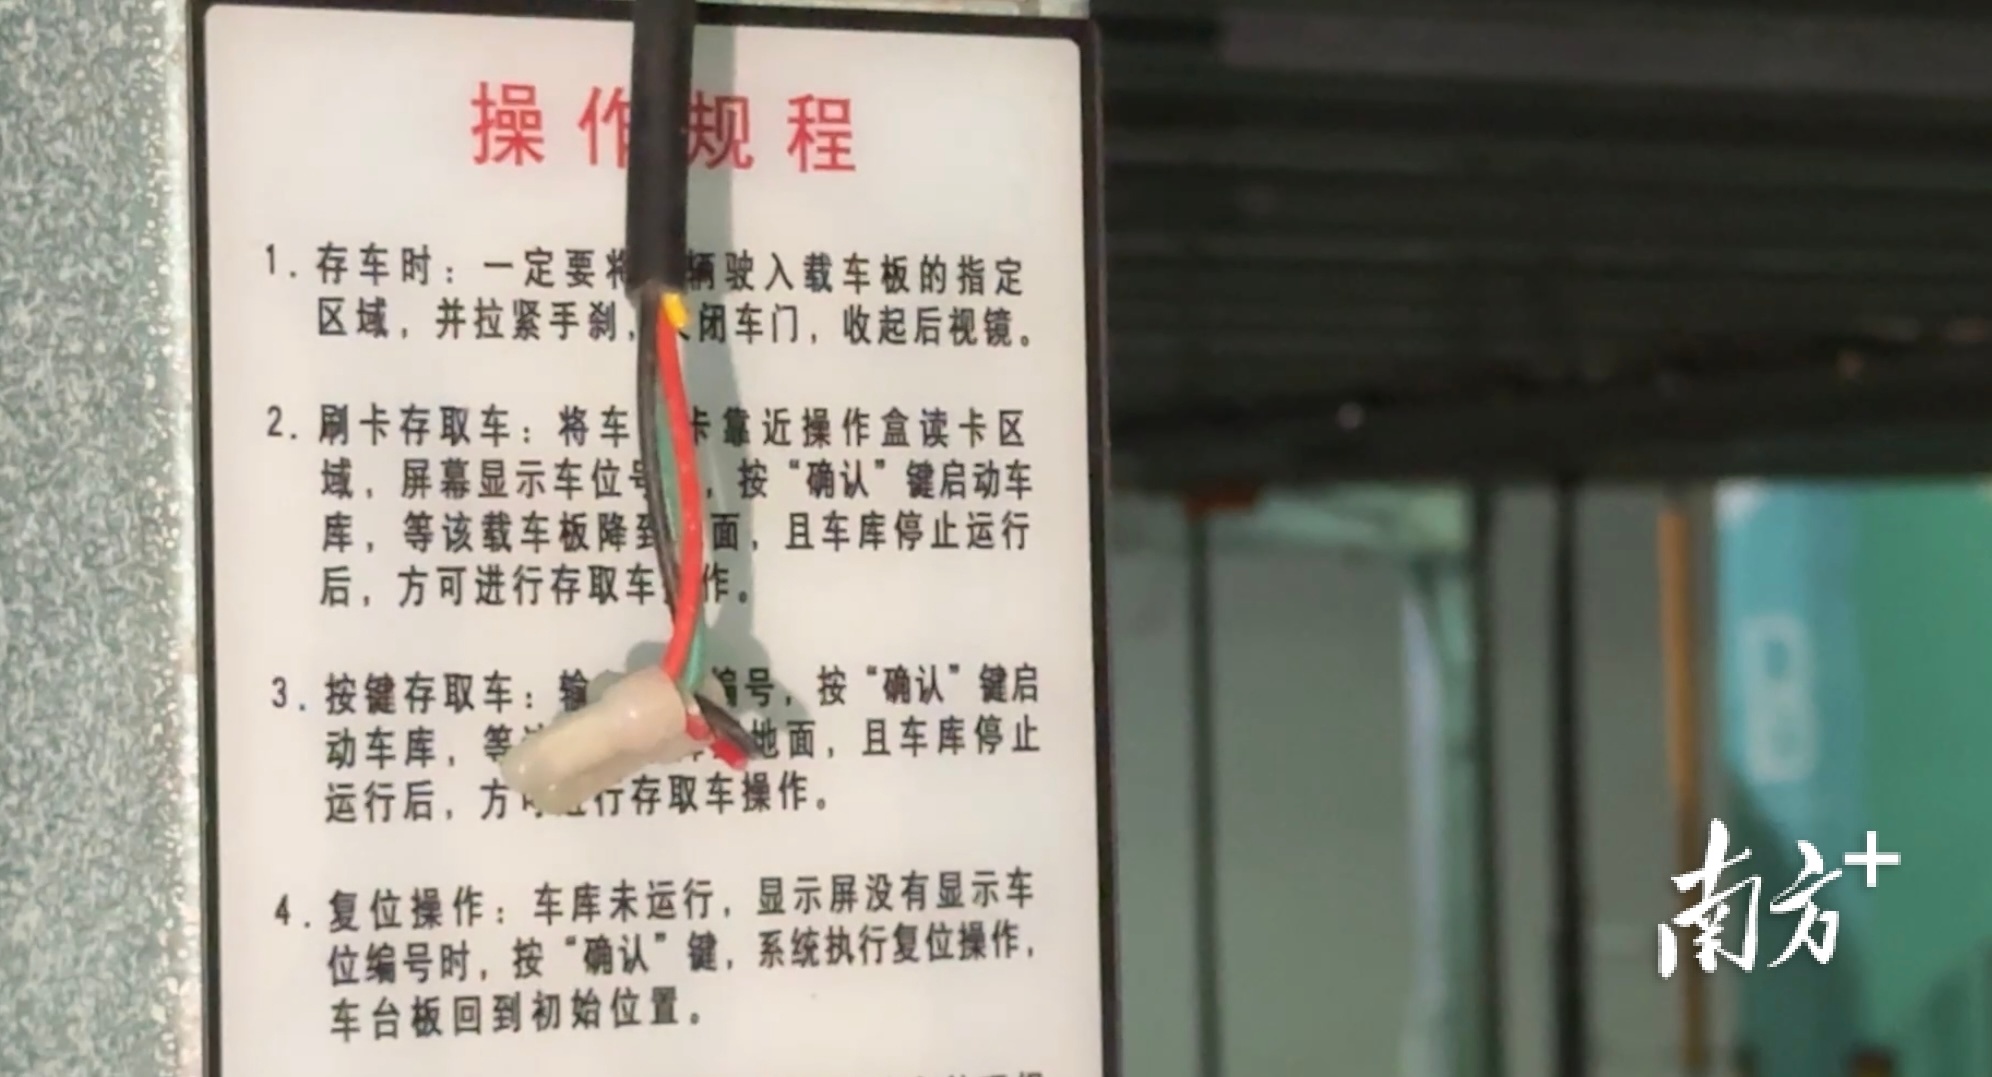 操作规程
1. 存车时：一定要将 辆驶入载车板的指定
区域，并拉紧手刹，关闭车门，收起后视镜。
2. 刷卡存取车：将车 卡靠近操作盒读卡区
域，屏幕显示车位号 ，按“确认”键启动车
库，等该载车板降到 面，且车库停止运行
后，方可进行存取车 作。
3. 按键存取车：输 编号，按“确认”键启
动车库，等 地面，且车库停止
运行后，方可进行存取车操作。
4. 复位操作：车库未运行，显示屏没有显示车
位编号时，按“确认”键，系统执行复位操作，
车台板回到初始位置。
南方+